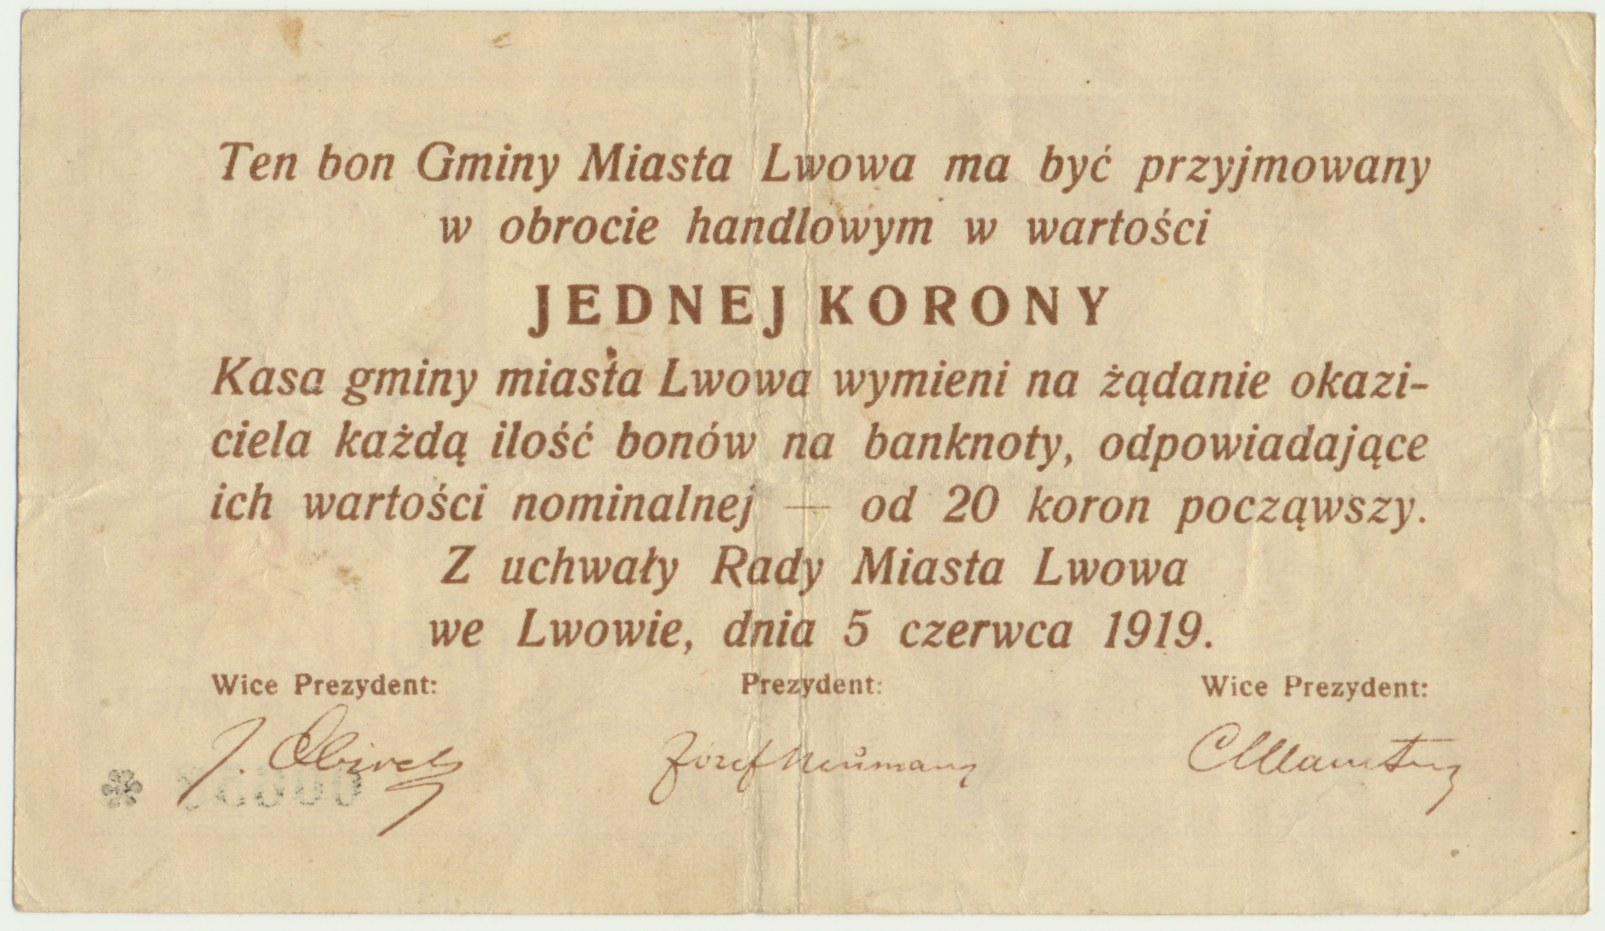 Ten bon Gminy Miasta Lwowa ma być przyjmowany
w obrocie handlowym w wartości
JEDNEJ KORONY
Kasa gminy miasta Lwowa wymieni na żądanie okazi-
ciela każdą ilość bonów na banknoty, odpowiadające
ich wartości nominalnej — od 20 koron począwszy.
Z uchwały Rady Miasta Lwowa
we Lwowie, dnia 5 czerwca 1919.
Wice Prezydent: Prezydent: Wice Prezydent:
Józef Neumann